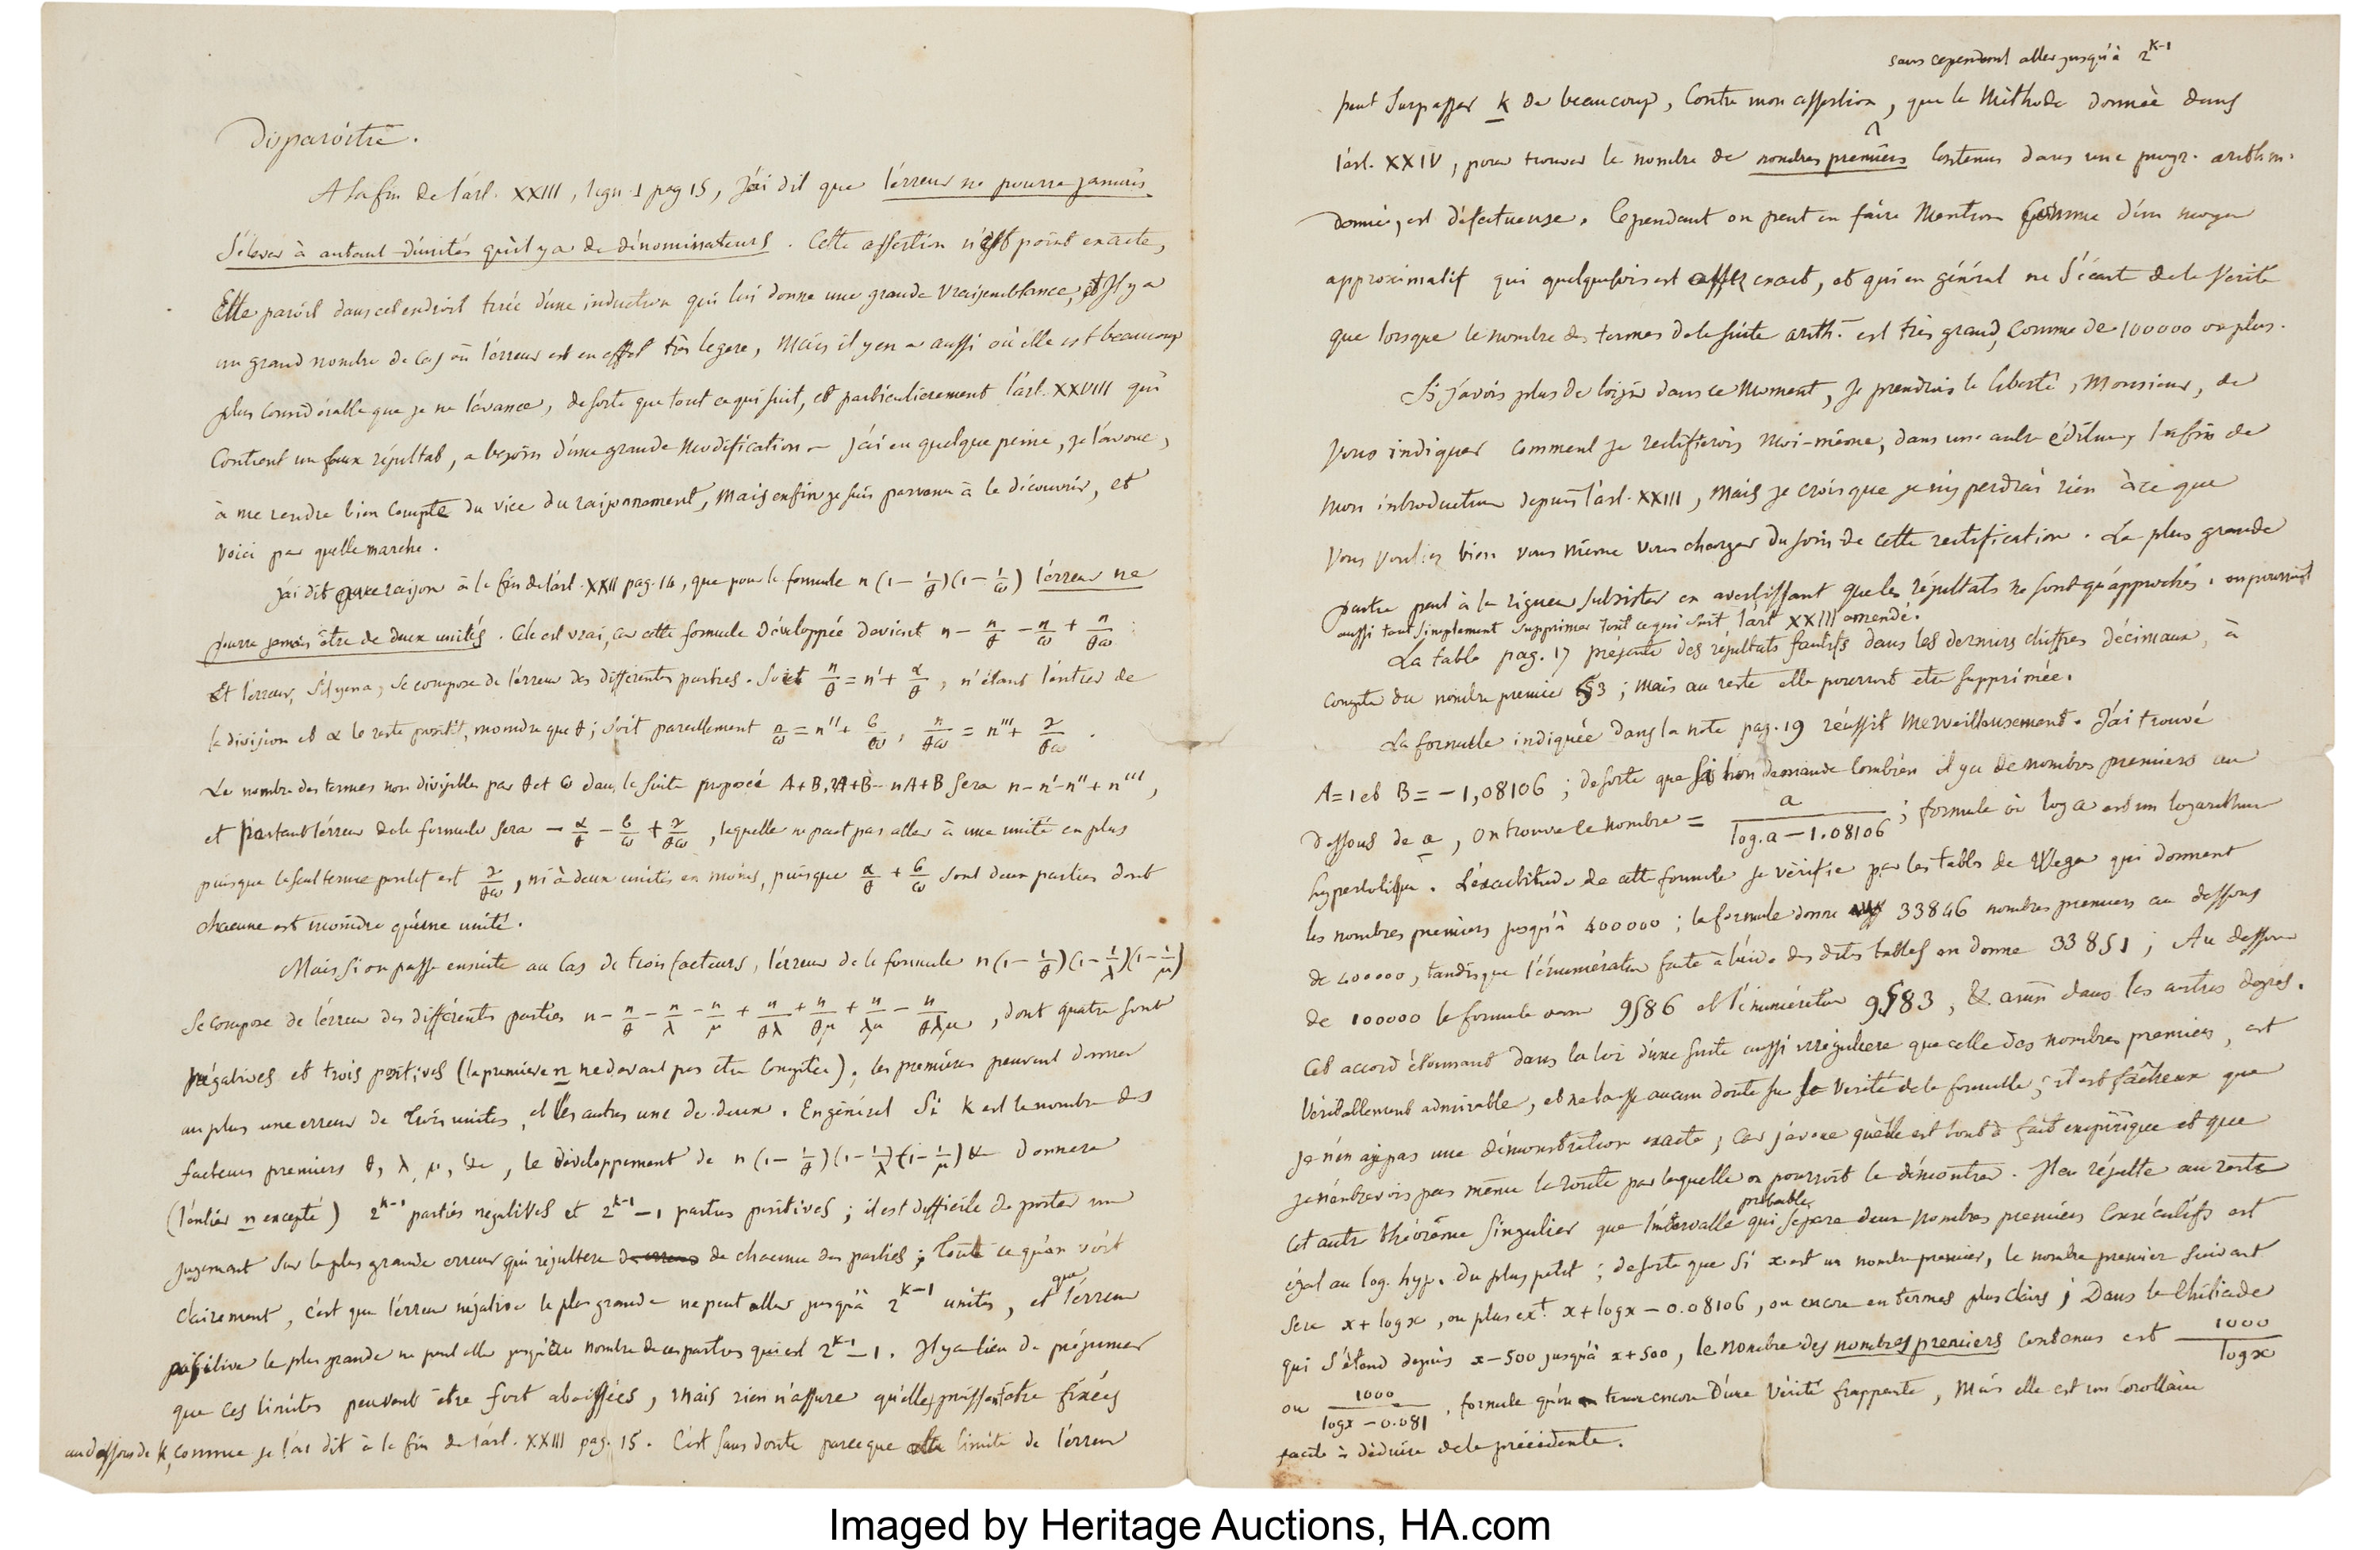 Disparoitre.
A la fin de l'art. XXIII, lign. 1 pag 15, j'ai dit que l'erreur ne pourra jamais
s'élever à autant d'unités qu'il y a de dénominateurs. Cette assertion n'est point exacte,
Elle paroit dans cet endroit tirée d'une induction qui lui donne une grande vraisemblance, et Il y a
un grand nombre de cas où l'erreur est en effet très legere, Mais il y en a aussi où elle est beaucoup
plus considérable que je ne l'avance, de sorte que tout ce qui suit, et particulierement l'art. XXVIII qui
Contient un faux résultat, a besoin d'une grande Modification – j'ai eu quelque peine, je l'avoue,
à me rendre bien compte du vice du raisonnement, Mais enfin je suis parvenu à le découvrir, et
voici par quelle marche.
J'ai dit avec raison à la fin de l'art. XXII pag. 14, que pour la formule n (1 − 1/θ)(1 − 1/ω) l'erreur ne
pourra jamais être de deux unités. Cela est vrai, car cette formule développée devient n − n/θ − n/ω + n/θω
Et l'erreur, s'il y en a, se compose de l'erreur des différentes parties. Soit n/θ = n' + α/θ, n' étant l'entier de
la division et α le reste positif, moindre que θ; soit pareillement n/ω = n'' + β/ω, n/θω = n''' + γ/θω.
Le nombre des termes non divisibles par θ et ω dans la suite proposée A+B, 2A+B – nA+B sera n − n' − n'' + n''',
et partant l'erreur de la formule sera − α/θ − β/ω + γ/θω, laquelle ne peut pas aller à une unité en plus
puisque le seul terme positif est γ/θω, ni à deux unités en moins, puisque α/θ + β/ω sont deux parties dont
chacune est moindre qu'une unité.
Mais si on passe ensuite au Cas de trois facteurs, l'erreur de la formule n(1 − 1/θ)(1 − 1/λ)(1 − 1/μ)
Se compose de l'erreur des différentes parties n − n/θ − n/λ − n/μ + n/θλ + n/θμ + n/λμ − n/θλμ, dont quatre sont
négatives et trois positives (la premiere n ne devant pas être comptée). les premieres peuvent donner
au plus une erreur de trois unités, et les autres une de deux. En général Si k est le nombre des
facteurs premiers θ, λ, μ, &c, le développement de n (1 − 1/θ)(1 − 1/λ)(1 − 1/μ) & donnera
(l'entier n excepté) 2^k-1 parties négatives et 2^k-1 − 1 parties positives; il est difficile de porter un
jugement sur la plus grande erreur qui résultera de chacune des parties; Tout ce qu'on voit
clairement, c'est que l'erreur négative la plus grande ne peut aller jusqu'à 2^K-1 unités, et que l'erreur
positive la plus grande ne peut aller jusqu'au nombre de ces parties qui est 2^k-1 − 1. Il y a lieu de présumer
que ces limites peuvent être fort abaissées, Mais rien n'assure qu'elles puissent être fixées
au dessous de k, comme je l'ai dit à la fin de l'art. XXIII pag. 15. C'est sans doute parce que cette limite de l'erreur
sans cependant aller jusqu'à 2^K-1
peut surpasser k de beaucoup, Contre mon assertion, que la Méthode donnée dans
l'art. XXIV, pour trouver le nombre de nombres premiers contenus dans une progr. arithm.
donnée, est défectueuse. Cependant on peut en faire Mention Comme d'un moyen
approximatif qui quelquefois est assez exact, et qui en général ne s'écarte de la vérité
que lorsque le nombre des termes de la suite arith. est très grand, comme de 100000 ou plus.
Si j'avois plus de loisir dans ce Moment, Je prendrais la liberté, Monsieur, de
vous indiquer comment je rectifierois Moi-même, dans une autre édition, la fin de
mon introduction depuis l'art. XXIII, Mais je crois que je n'y perdrai rien à ce que
vous vouliez bien vous même vous charger du soin de cette rectification. La plus grande
partie peut à la rigueur subsister en avertissant que les résultats ne sont qu'approchés. on pourroit
aussi tout simplement supprimer tout ce qui suit l'art XXIII amendé.
La table pag. 17 présente des résultats fautifs dans les derniers chiffres décimaux, à
compter du nombre premier 53; Mais au reste elle pourroit etre supprimée.
La formule indiquée dans la note pag. 19 réussit Merveilleusement. J'ai trouvé
A = 1 et B = − 1,08106; de sorte que si l'on demande combien il y a de nombres premiers au
dessous de a, on trouvera ce nombre = a/(log. a − 1.08106); formule où log a est un logarithme
hyperbolique. L'exactitude de cette formule se vérifie par les tables de Wega qui donnent
les nombres premiers jusqu'à 400000; la formule donne 33846 nombres premiers au dessous
de 400000, tandis que l'énumération faite à l'aide des dites tables en donne 33851; Au dessous
de 100000 la formule donne 9586 et l'énumération 9583, & ainsi dans les autres degrés.
Cet accord étonnant dans la loi d'une suite aussi irréguliere que celle des nombres premiers, est
véritablement admirable, et ne laisse aucun doute sur la vérité de la formule; il est fâcheux que
je n'en aye pas une démonstration exacte; Car j'avoue qu'elle est tout à fait empirique et que
je n'entrevois pas même la route par laquelle on pourroit la démontrer. Il en résulte au reste
cet autre théorème singulier que l'intervalle probable qui sépare deux nombres premiers consécutifs est
égal au log. hyp. du plus petit; de sorte que si x est un nombre premier, le nombre premier suivant
sera x + log x, ou plus ext. x + log x − 0.08106, ou encore en termes plus clairs; Dans la Chiliade
qui s'étend depuis x − 500 jusqu'à x + 500, le nombre des nombres premiers contenus est 1000/log x
ou 1000/(log x − 0.081), formule qu'on trouve encore d'une vérité frappante, Mais elle est un Corollaire
facile à déduire de la précédente.
Imaged by Heritage Auctions, HA.com